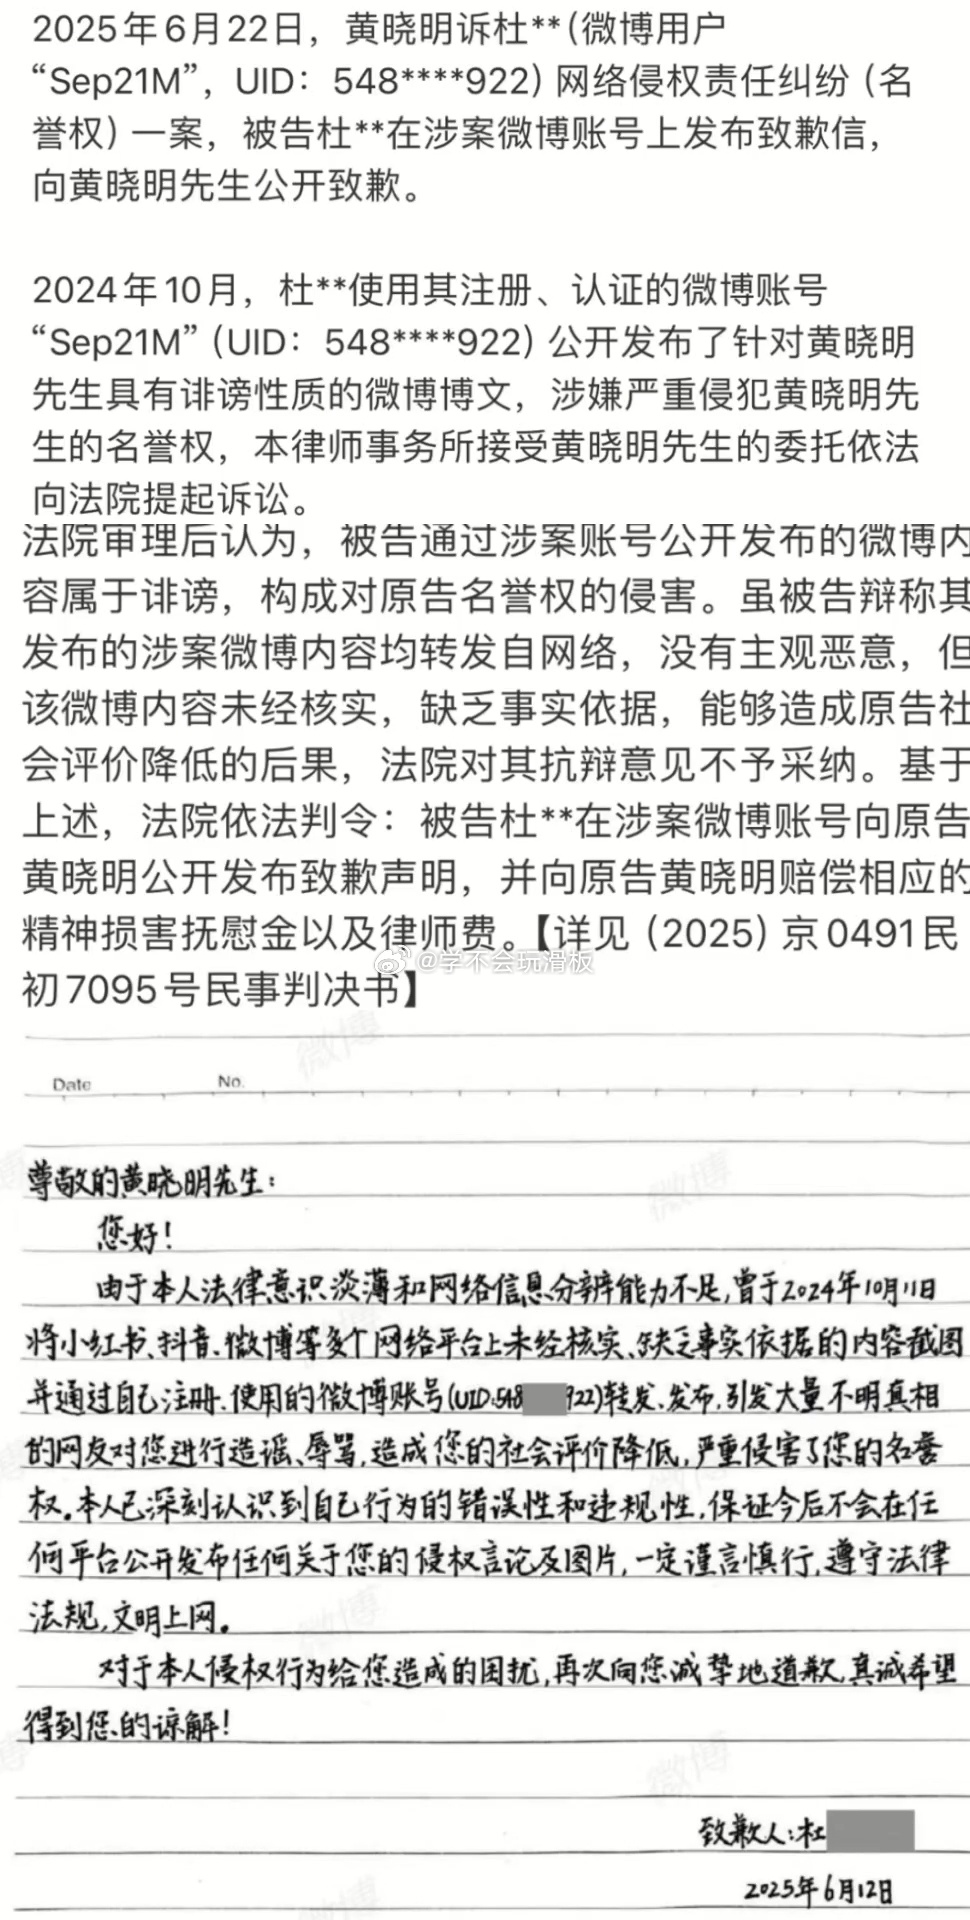 2025年6月22日，黄晓明诉杜**（微博用户
“Sep21M”，UID：548****922）网络侵权责任纠纷（名
誉权）一案，被告杜**在涉案微博账号上发布致歉信，
向黄晓明先生公开致歉。
2024年10月，杜**使用其注册、认证的微博账号
“Sep21M”（UID：548****922）公开发布了针对黄晓明
先生具有诽谤性质的微博博文，涉嫌严重侵犯黄晓明先
生的名誉权，本律师事务所接受黄晓明先生的委托依法
向法院提起诉讼。
法院审理后认为，被告通过涉案账号公开发布的微博内
容属于诽谤，构成对原告名誉权的侵害。虽被告辩称其
发布的涉案微博内容均转发自网络，没有主观恶意，但
该微博内容未经核实，缺乏事实依据，能够造成原告社
会评价降低的后果，法院对其抗辩意见不予采纳。基于
上述，法院依法判令：被告杜**在涉案微博账号向原告
黄晓明公开发布致歉声明，并向原告黄晓明赔偿相应的
精神损害抚慰金以及律师费。【详见（2025）京0491民
@学不会玩滑板
初7095号民事判决书】
微博
Date No.
微博
尊敬的黄晓明先生：
您好！
由于本人法律意识淡薄和网络信息分辨能力不足，曾于2024年10月11日
将小红书、抖音、微博等多个网络平台上未经核实、缺乏事实依据的内容截图
并通过自己注册、使用的微博账号(UID:548 922)转发、发布，引发大量不明真相
的网友对您进行造谣、辱骂，造成您的社会评价降低，严重侵害了您的名誉
权。本人已深刻认识到自己行为的错误性和违规性，保证今后不会在任
何平台公开发布任何关于您的侵权言论及图片，一定谨言慎行，遵守法律
法规，文明上网。
微博
对于本人侵权行为给您造成的困扰，再次向您诚挚地道歉，真诚希望
得到您的谅解！
微博
致歉人：杜
2025年6月12日
微博